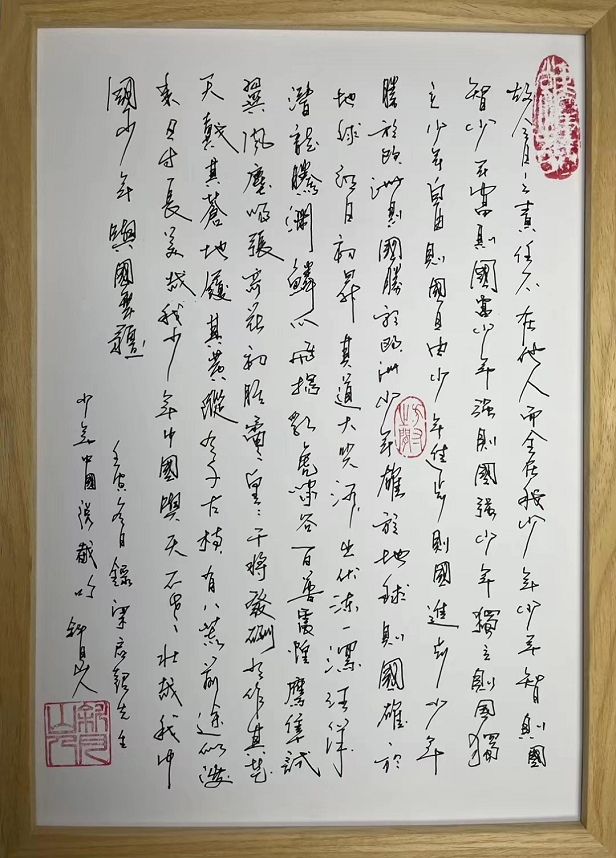 故今日之責任不在他人而全在我少年少年智則國
智少年富則國富少年强則國强少年獨立則國獨
立少年自由則國自由少年進步則國進步少年
勝於欧洲則國勝於欧洲少年雄於地球則國雄於
地球紅日初昇其道大光河出伏流一瀉汪洋
潛龍騰淵鱗爪飛揚乳虎嘯谷百兽震惶鷹隼試
翼風塵吸張奇花初胎矞〻皇〻干將發硎有作其芒
天戴其蒼地履其黄縱有千古横有八荒前途似海
来日方長美哉我少年中國與天不老壯哉我中
國少年與國無疆
壬寅冬日錄梁启超先生
少年中國說截句 山人